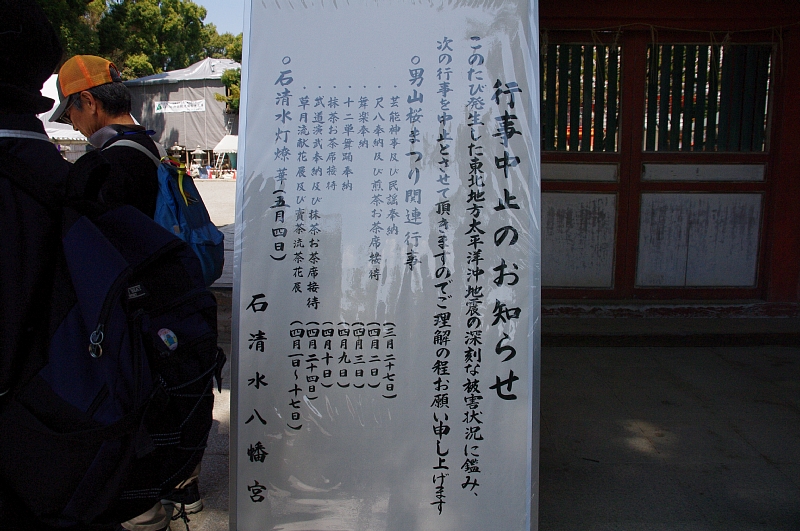 行事中止のお知らせ
このたび発生した東北地方太平洋沖地震の深刻な被害状況に鑑み、
次の行事を中止とさせて頂きますのでご理解の程お願い申し上げます
○男山桜まつり関連行事
・芸能神事及び民謡奉納（三月二十七日）
・尺八奉納及び煎茶お茶席接待（四月二日）
・箏楽奉納（四月三日）
・十二単舞踊奉納（四月九日）
・抹茶お茶席接待（四月十日）
・武道演武奉納及び抹茶お茶席接待（四月二十四日）
・草月流献花展及び賣茶流茶花展（四月一日～十七日）
○石清水灯燎華（五月四日）
石清水八幡宮